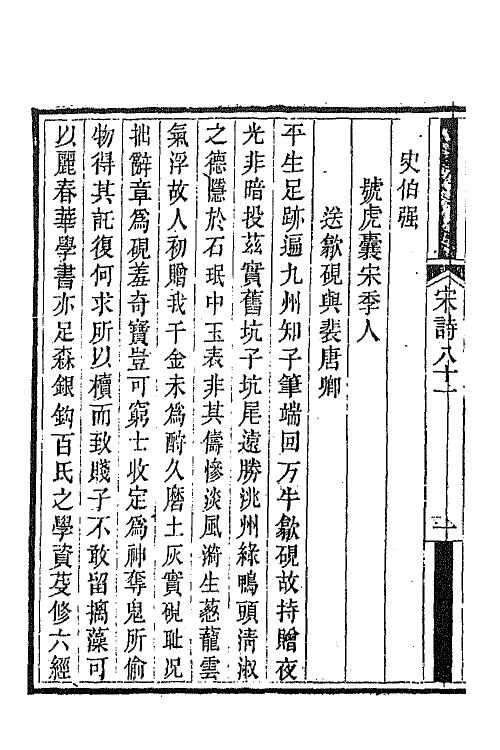 宋詩八十一
史伯强
號虎囊宋季人
送歙硯與裴唐卿
平生足跡遍九州知子筆端回万牛歙硯故持贈夜
光非暗投茲實舊坑子坑尾遠勝洮州綠鴨頭清淑
之德隱於石珉中玉表非其儔慘淡風漪生葱蘢雲
氣浮故人初贈我千金未為酧久磨土灰實硯耻况
拙辭章為硯羞奇寶豈可窮士收定為神奪鬼所偷
物得其託復何求所以櫝而致賤子不敢留摛藻可
以麗春華學書亦足森銀鈎百氏之學資芟修六經